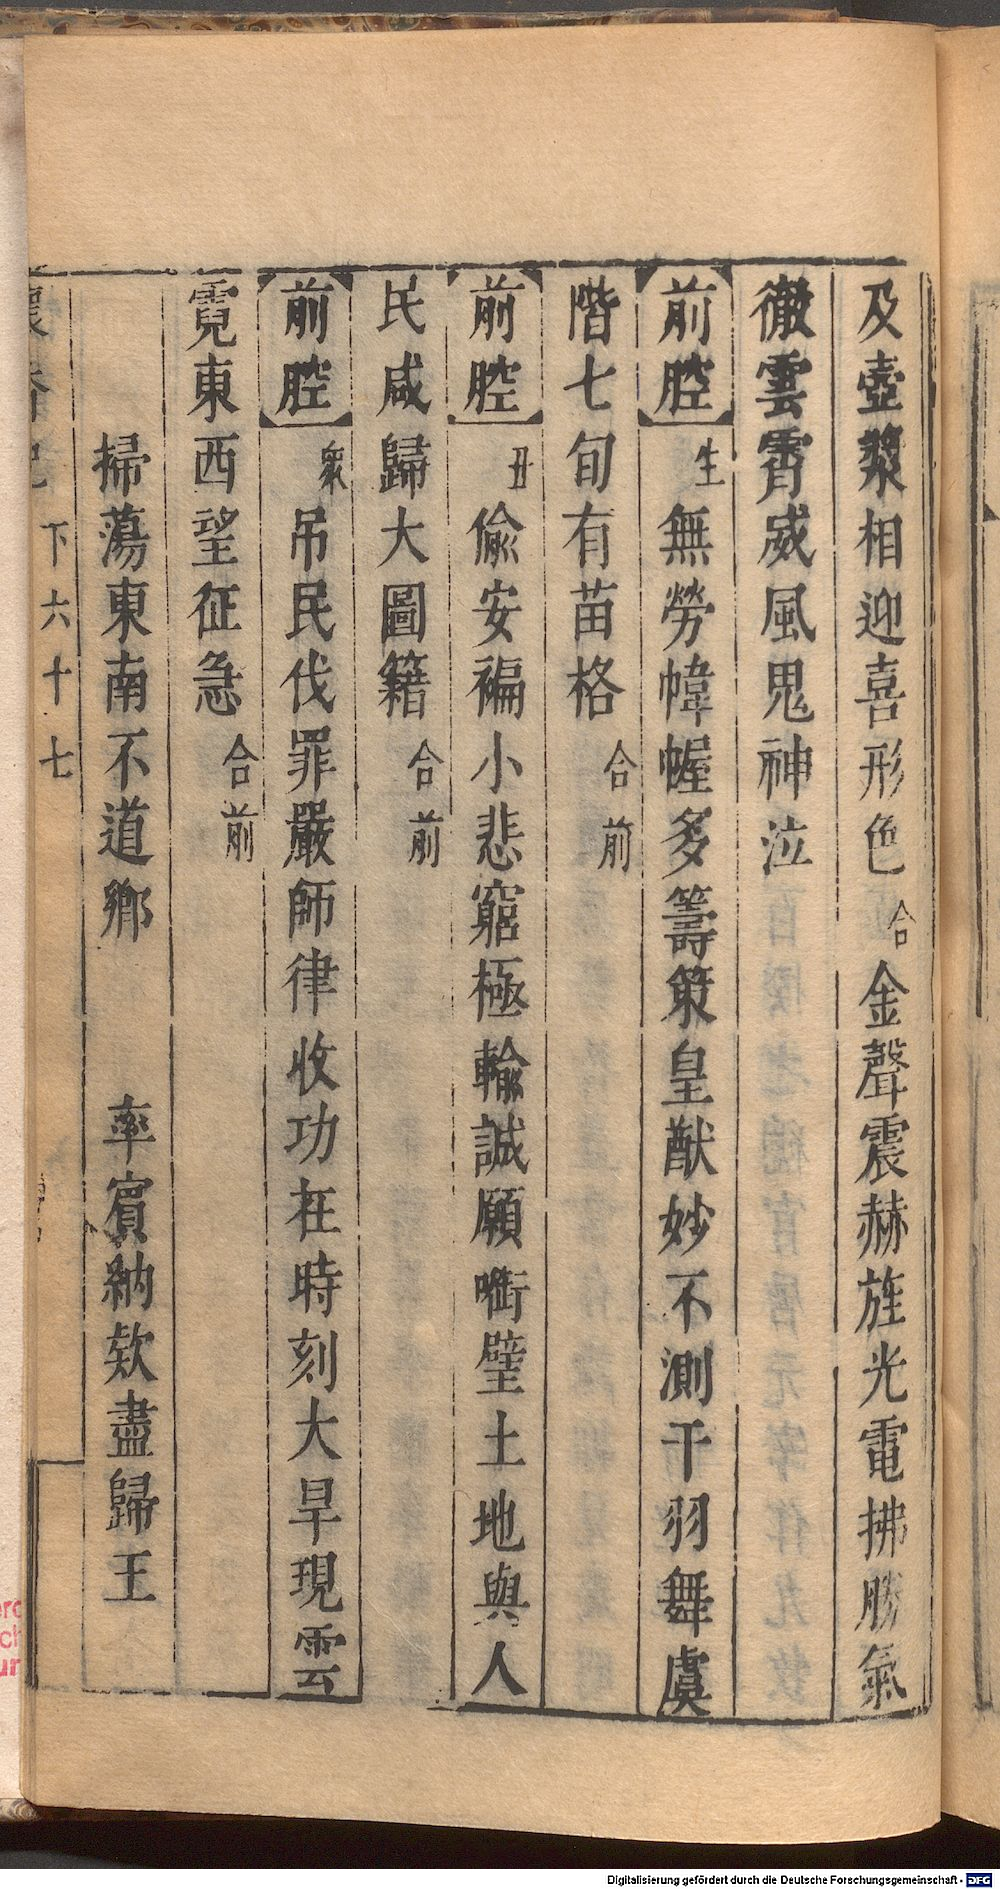 及壺漿相迎喜形色合金聲震赫旌光電拂勝氣
徹雲霄威風鬼神泣
前腔生無勞幃幄多籌策皇猷妙不測干羽舞虞
階七旬有苗格合前
前腔丑偷安褊小悲窮極輸誠願啣璧土地與人
民咸歸大圖籍合前
前腔衆吊民伐罪嚴師律收功在時刻大旱現雲
霓東西望征急合前
掃蕩東南不道鄉 率賓納欵盡歸王
下六十七
Digitalisierung gefördert durch die Deutsche Forschungsgemeinschaft - DFG